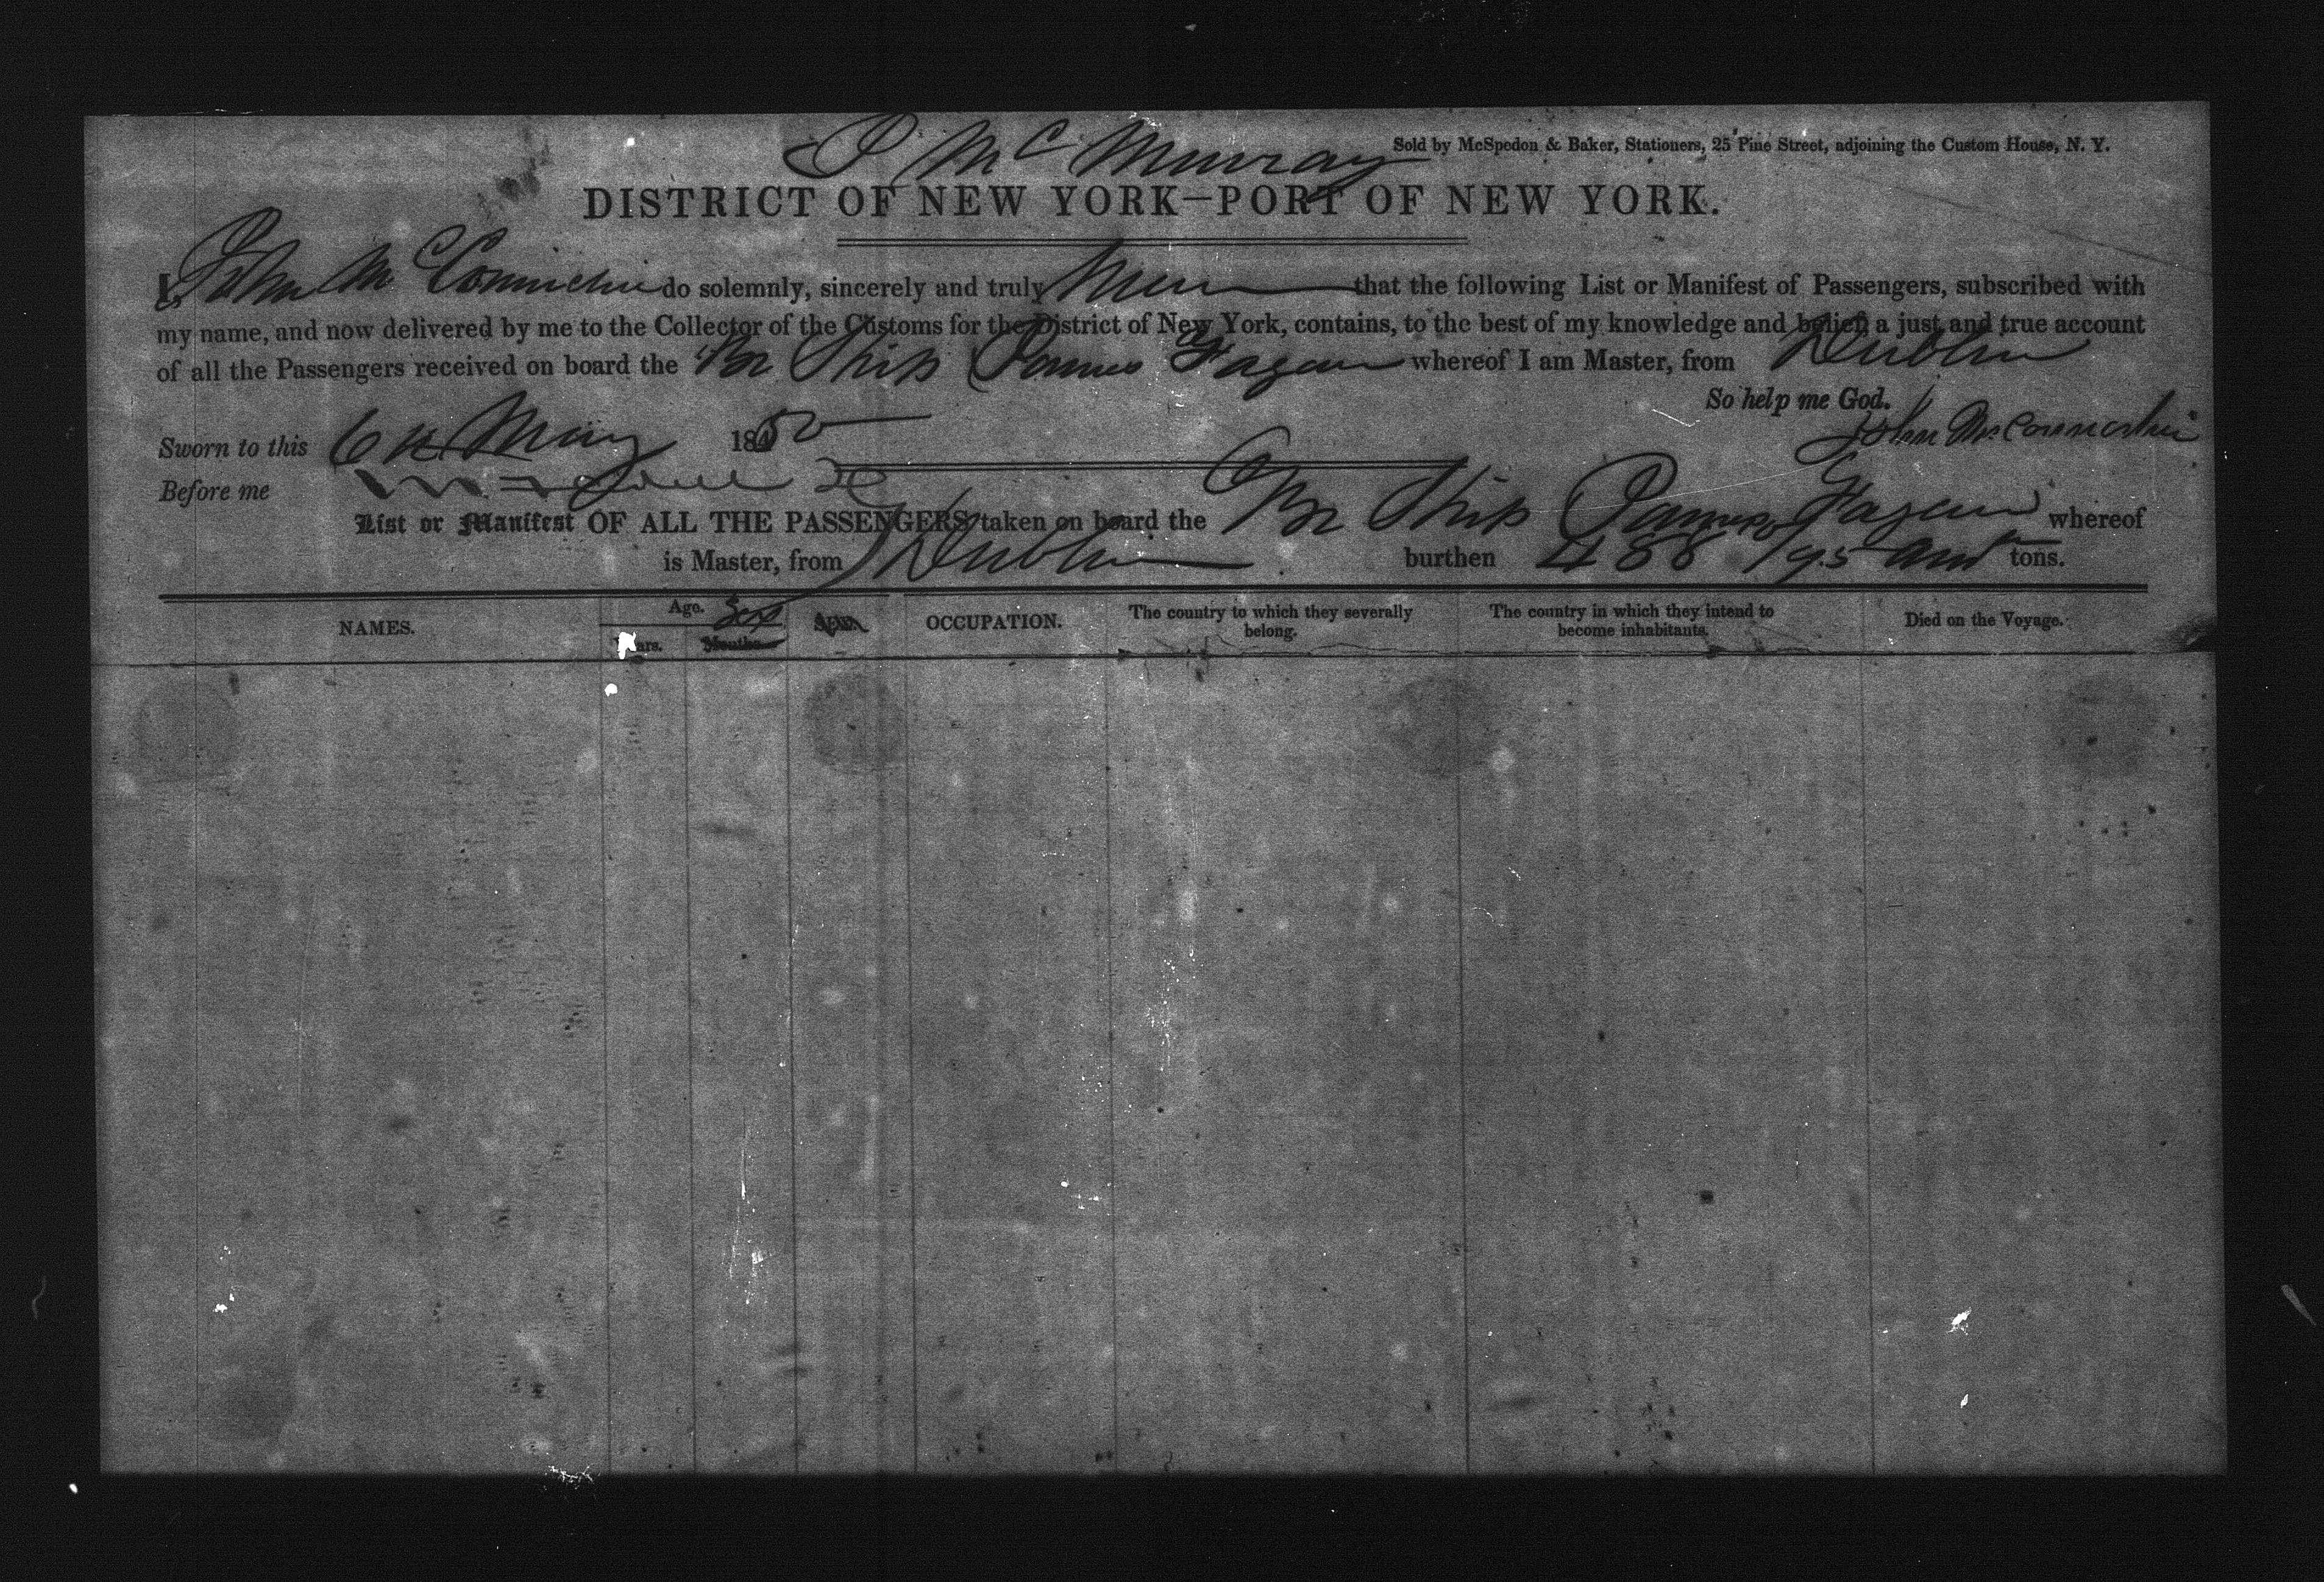 J McMurray
Sold by McSpedon & Baker, Stationers, 25 Pine Street, adjoining the Custom House, N. Y.
DISTRICT OF NEW YORK—PORT OF NEW YORK.
I, John McConnechie do solemnly, sincerely and truly that the following List or Manifest of Passengers, subscribed with
my name, and now delivered by me to the Collector of the Customs for the District of New York, contains, to the best of my knowledge and belief, a just and true account
of all the Passengers received on board the Br Ship James Fagan whereof I am Master, from Dublin
So help me God.
Sworn to this 6th May 1850 John McConnechie
Before me
List or Manifest OF ALL THE PASSENGERS taken on board the Br Ship James Fagan whereof
is Master, from Dublin burthen 488 /95 tons.
NAMES. Age. Sex Sex. OCCUPATION. The country to which they severally belong. The country in which they intend to become inhabitants. Died on the Voyage.
Years. Months.